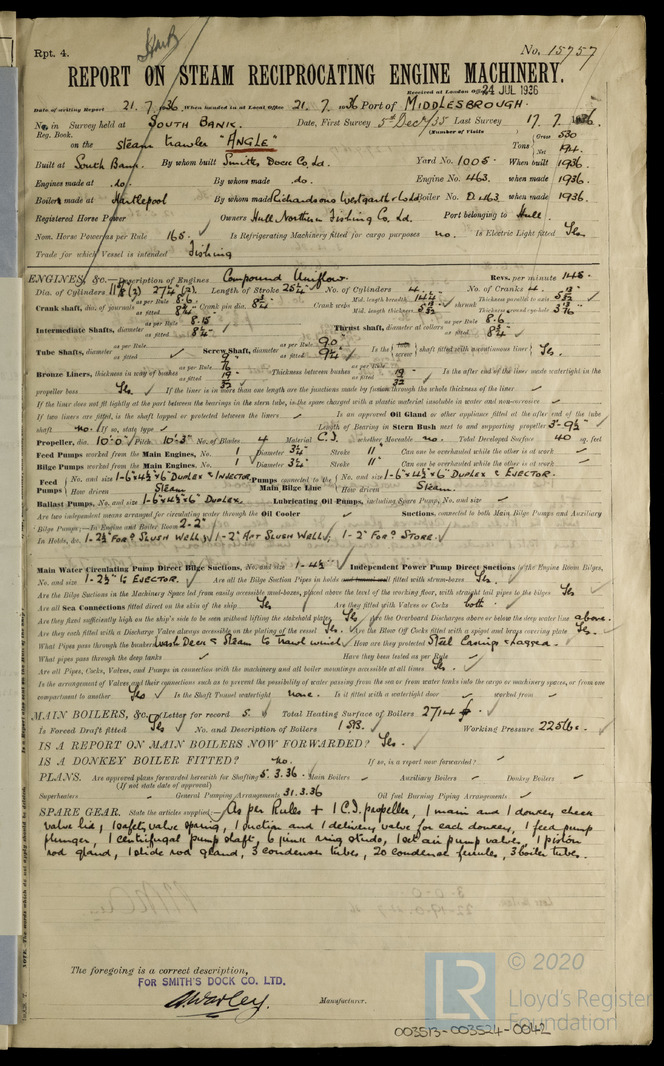 Rpt. 4.
No. 15757
REPORT ON STEAM RECIPROCATING ENGINE MACHINERY.
Received at London Office 24 JUL 1936
Date of writing Report 21. 7. 1936 When handed in at Local Office 21. 7. 1936 Port of MIDDLESBROUGH.
No. in Survey held at SOUTH BANK. Date, First Survey 5th Dec/35 Last Survey 17. 7. 1936.
Reg. Book. (Number of Visits
on the Steam trawler "ANGLE" Tons Gross 530
Net 194
Built at South Bank. By whom built Smiths Dock Co Ld. Yard No. 1005. when made 1936
Engines made at do. By whom made do. Engine No. 463. when made 1936.
Boilers made at Hartlepool By whom made Richardsons Westgarth & Co Ld Boiler No. D.463 when made 1936.
Registered Horse Power Owners Hull Northern Fishing Co. Ld. Port belonging to Hull.
Nom. Horse Power as per Rule 165. Is Refrigerating Machinery fitted for cargo purposes no. Is Electric Light fitted Yes.
Trade for which Vessel is intended Fishing
ENGINES, &c.—Description of Engines Compound Uniflow. Revs. per minute 145.
Dia. of Cylinders Length of Stroke No. of Cylinders 4. No. of Cranks 4.
Crank shaft, dia. of journals as per Rule 8.6 as fitted 8 3/4" Crank pin dia. 8 3/4" Crank webs Mid. length breadth Mid. length thickness shrunk Thickness parallel to axis Thickness around eye-hole
Intermediate Shafts, diameter as per Rule 8.15 as fitted 8 1/4" Thrust shaft, diameter at collars as per Rule 8.6 as fitted 8 3/4"
Tube Shafts, diameter as per Rule as fitted Screw Shaft, diameter as per Rule 9.0 as fitted 9 1/4" Is the screw shaft fitted with a continuous liner Yes.
Bronze Liners, thickness in way of bushes as per Rule as fitted Thickness between bushes as per Rule as fitted Is the after end of the liner made watertight in the
propeller boss Yes If the liner is in more than one length are the junctions made by fusion through the whole thickness of the liner
If the liner does not fit tightly at the part between the bearings in the stern tube, is the space charged with a plastic material insoluble in water and non-corrosive
If two liners are fitted, is the shaft lapped or protected between the liners Is an approved Oil Gland or other appliance fitted at the after end of the tube
shaft no. If so, state type Length of Bearing in Stern Bush next to and supporting propeller 3'-9 1/2"
Propeller, dia. 10'-0" Pitch 10'-3" No. of Blades 4 Material C.I. whether Moveable no. Total Developed Surface 40 sq. feet
Feed Pumps worked from the Main Engines, No. 1 Diameter 3 1/4" Stroke 11" Can one be overhauled while the other is at work
Bilge Pumps worked from the Main Engines, No. 1 Diameter 3 1/4" Stroke 11" Can one be overhauled while the other is at work
Feed Pumps No. and size 1-6"x4 1/2"x6" DUPLEX & INJECTOR Pumps connected to the Main Bilge Line No. and size 1-6"x4 1/2"x6" DUPLEX & EJECTOR.
How driven Steam How driven Steam
Ballast Pumps, No. and size 1-6"x4 1/2"x6" DUPLEX Lubricating Oil Pumps, including Spare Pump, No. and size
Are two independent means arranged for circulating water through the Oil Cooler Suctions, connected to both Main Bilge Pumps and Auxiliary
Bilge Pumps;—In Engine and Boiler Room 2-2"
In Holds, &c. 1-2 1/2" FORD SLUSH WELL; 1-2" AFT SLUSH WELL; 1-2" FORD STORE.
Main Water Circulating Pump Direct Bilge Suctions, No. and size 1-4 1/2" Independent Power Pump Direct Suctions to the Engine Room Bilges,
No. and size 1-2 1/2" to EJECTOR. Are all the Bilge Suction Pipes in holds and tunnel well fitted with strum-boxes Yes.
Are the Bilge Suctions in the Machinery Space led from easily accessible mud-boxes, placed above the level of the working floor, with straight tail pipes to the bilges Yes
Are all Sea Connections fitted direct on the skin of the ship Yes Are they fitted with Valves or Cocks both
Are they fixed sufficiently high on the ship's side to be seen without lifting the stokehold plates Yes Are the Overboard Discharges above or below the deep water line above.
Are they each fitted with a Discharge Valve always accessible on the plating of the vessel Yes. Are the Blow Off Cocks fitted with a spigot and brass covering plate Yes.
What Pipes pass through the bunkers Wash Deck & Steam to Trawl winch How are they protected Steel Casing & Lagged.
What pipes pass through the deep tanks Have they been tested as per Rule
Are all Pipes, Cocks, Valves, and Pumps in connection with the machinery and all boiler mountings accessible at all times Yes.
In the arrangement of Valves and their connections such as to prevent the possibility of water passing from the sea or from water tanks into the cargo or machinery spaces, or from one
compartment to another Yes Is the Shaft Tunnel watertight none. Is it fitted with a watertight door worked from
MAIN BOILERS, &c.—(Letter for record S. ) Total Heating Surface of Boilers 2714
Is Forced Draft fitted Yes No. and Description of Boilers 1 SB. Working Pressure 225 lbs.
IS A REPORT ON MAIN BOILERS NOW FORWARDED? Yes.
IS A DONKEY BOILER FITTED? no. If so, is a report now forwarded?
PLANS. Are approved plans forwarded herewith for Shafting 5.3.36 Main Boilers Auxiliary Boilers Donkey Boilers
(If not state date of approval)
Superheaters General Pumping Arrangements 31.3.36 Oil fuel Burning Piping Arrangements
SPARE GEAR. State the articles supplied:— As per Rules + 1 C.I. propeller, 1 main and 1 donkey check
valve lid, 1 safety valve spring, 1 suction and 1 delivery valve for each donkey, 1 feed pump
plunger, 1 centrifugal pump shaft, 6 junk ring studs, 1 set air pump valves, 1 piston
rod gland, 1 slide rod gland, 3 condenser tubes, 20 condenser ferrules, 3 boiler tubes.
The foregoing is a correct description,
FOR SMITH'S DOCK CO. LTD.
Manufacturer.
LR
© 2020
Lloyd's Register
Foundation
003513-003524-0042